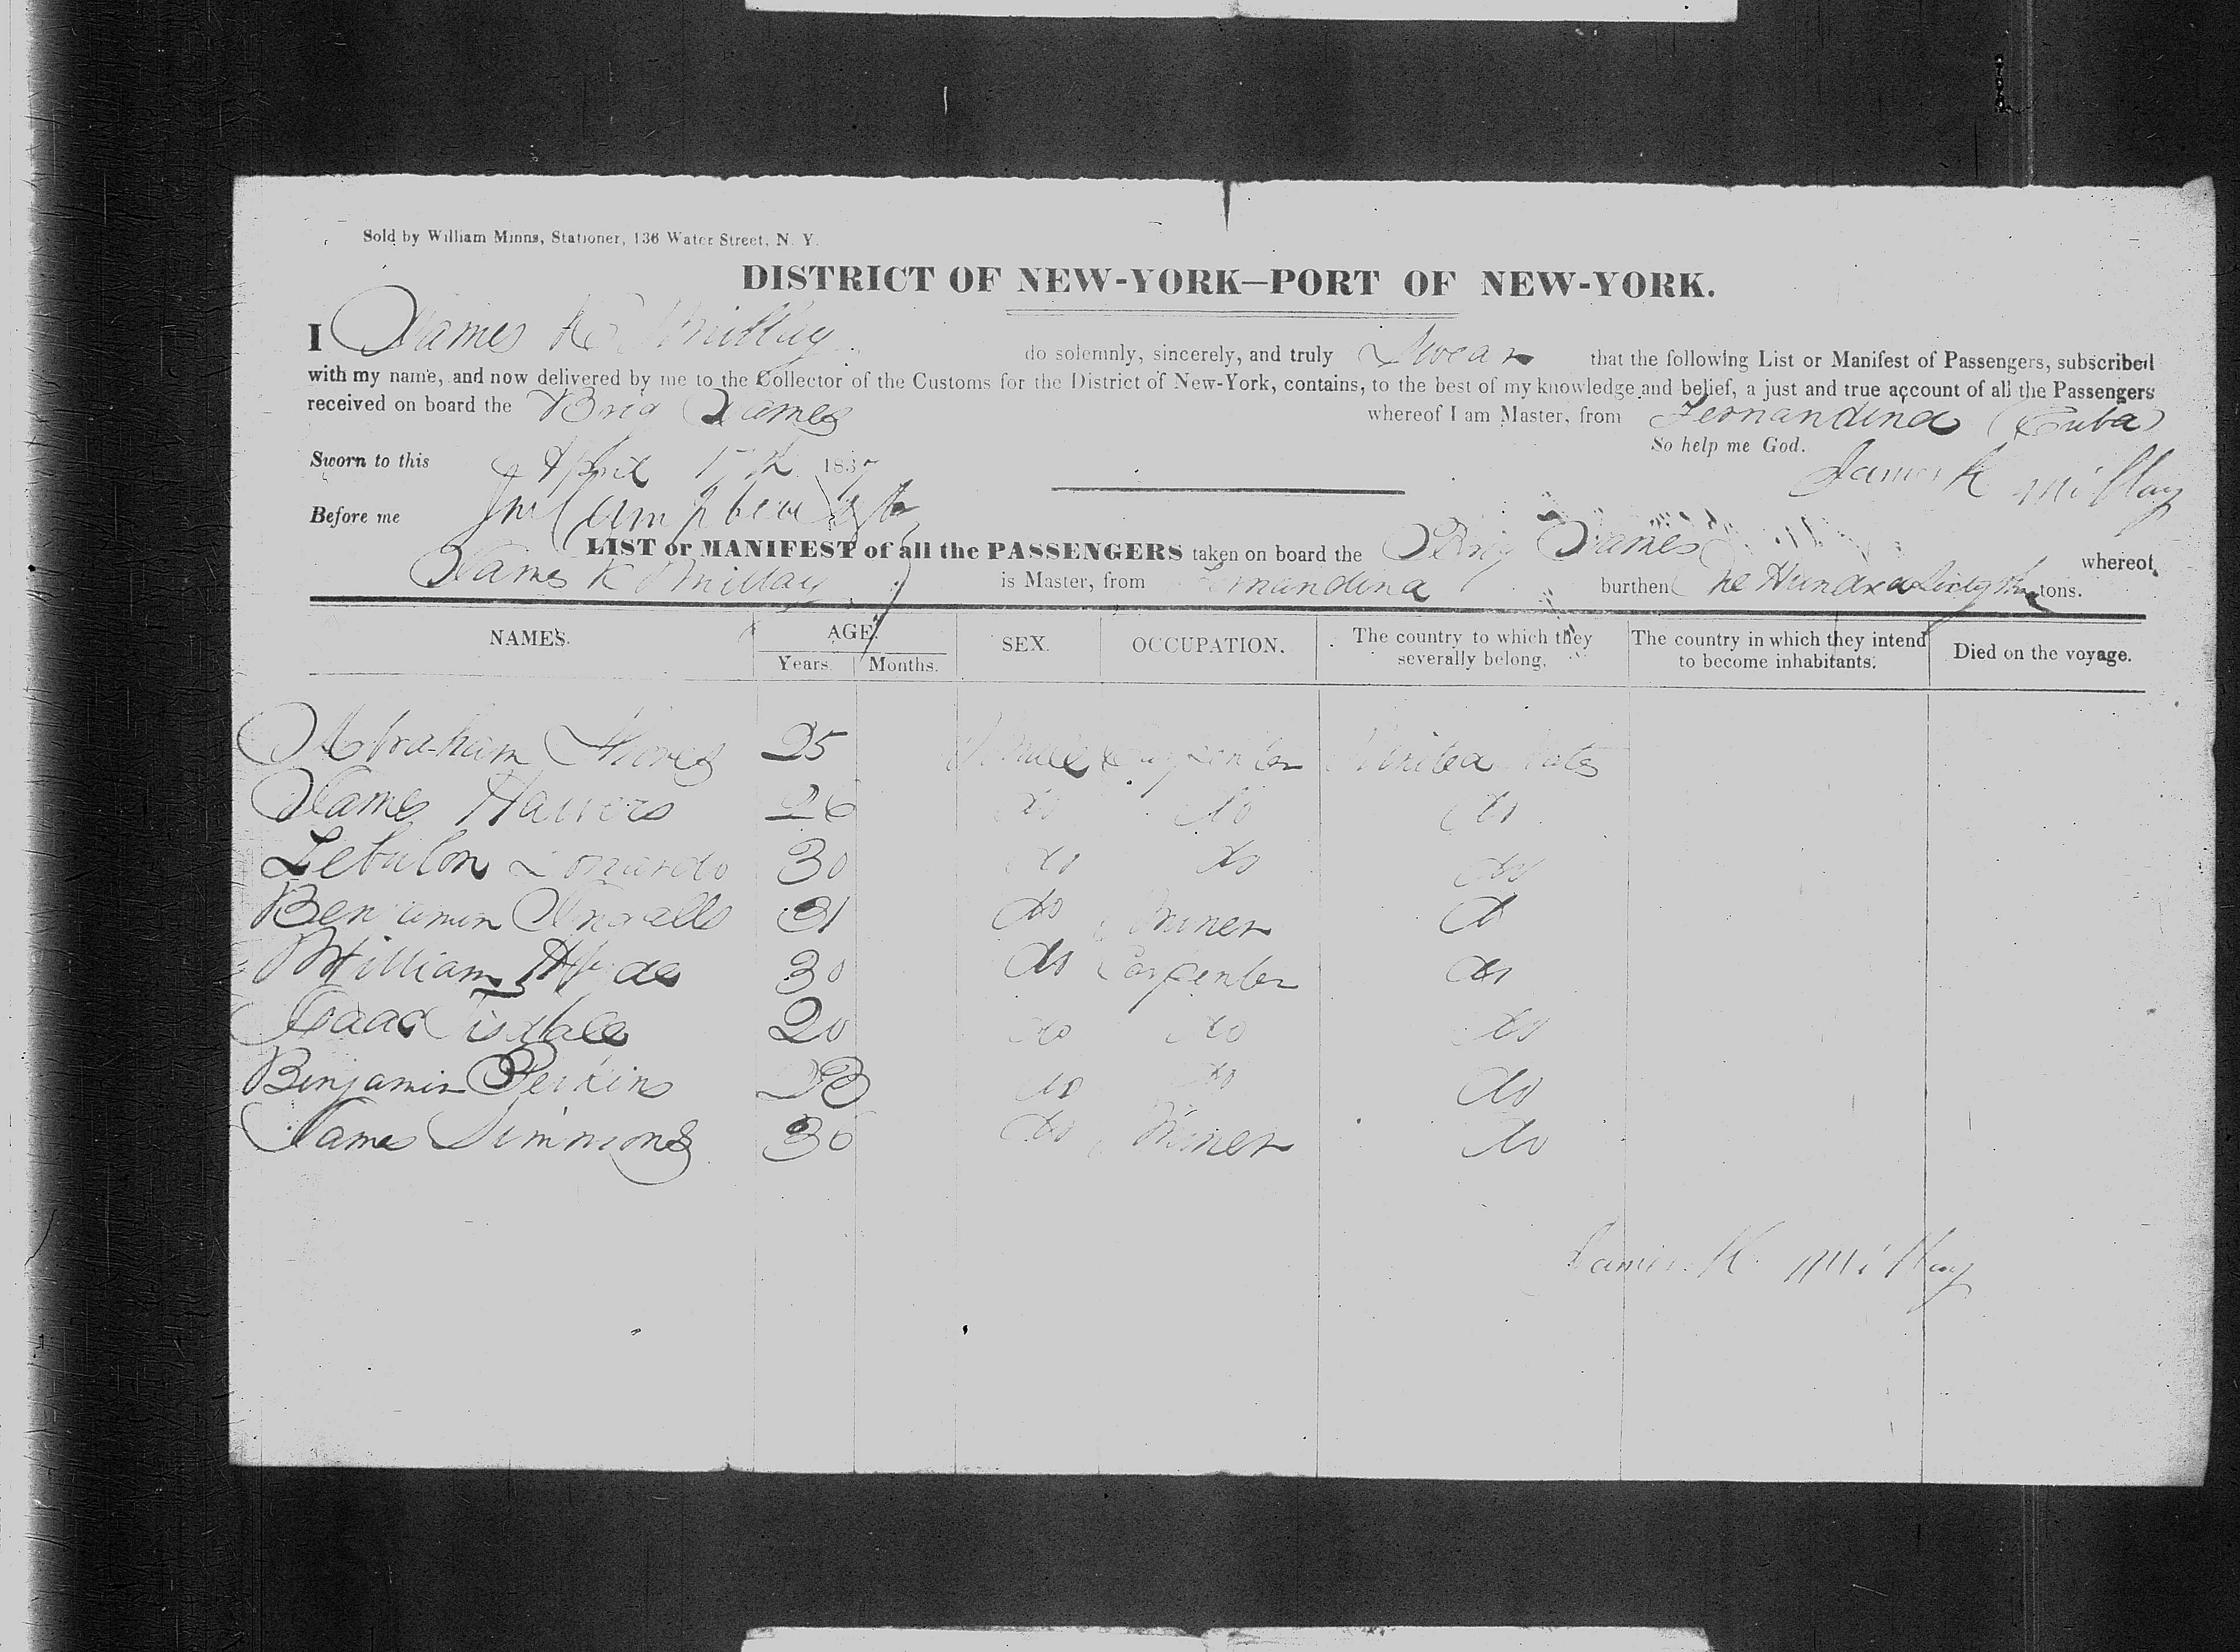 Sold by William Minns, Stationer, 136 Water Street, N. Y.
DISTRICT OF NEW-YORK—PORT OF NEW-YORK.
I James K Millay do solemnly, sincerely, and truly Swear that the following List or Manifest of Passengers, subscribed
with my name, and now delivered by me to the Collector of the Customs for the District of New-York, contains, to the best of my knowledge and belief, a just and true account of all the Passengers
received on board the Brig James whereof I am Master, from Fernandina (Cuba)
So help me God.
Sworn to this April 17th 1837
James K Millay
Before me Campbell
LIST or MANIFEST of all the PASSENGERS taken on board the Brig James whereof
James K Millay is Master, from Fernandina burthen One Hundred Sixty tons.
NAMES. AGE. SEX. OCCUPATION. The country to which they severally belong. The country in which they intend to become inhabitants. Died on the voyage.
Years. Months.
Abraham 25 Male Carpenter United States
James 26 do do do
Zebulon Lonardo 30 do do do
Benjamin Ingalls 31 do Miner do
William Hyde 30 do Carpenter do
Isaac Tisdale 20 do do do
Benjamin Perkins 23 do do do
James Simmons 30 do Miner do
James K. Millay